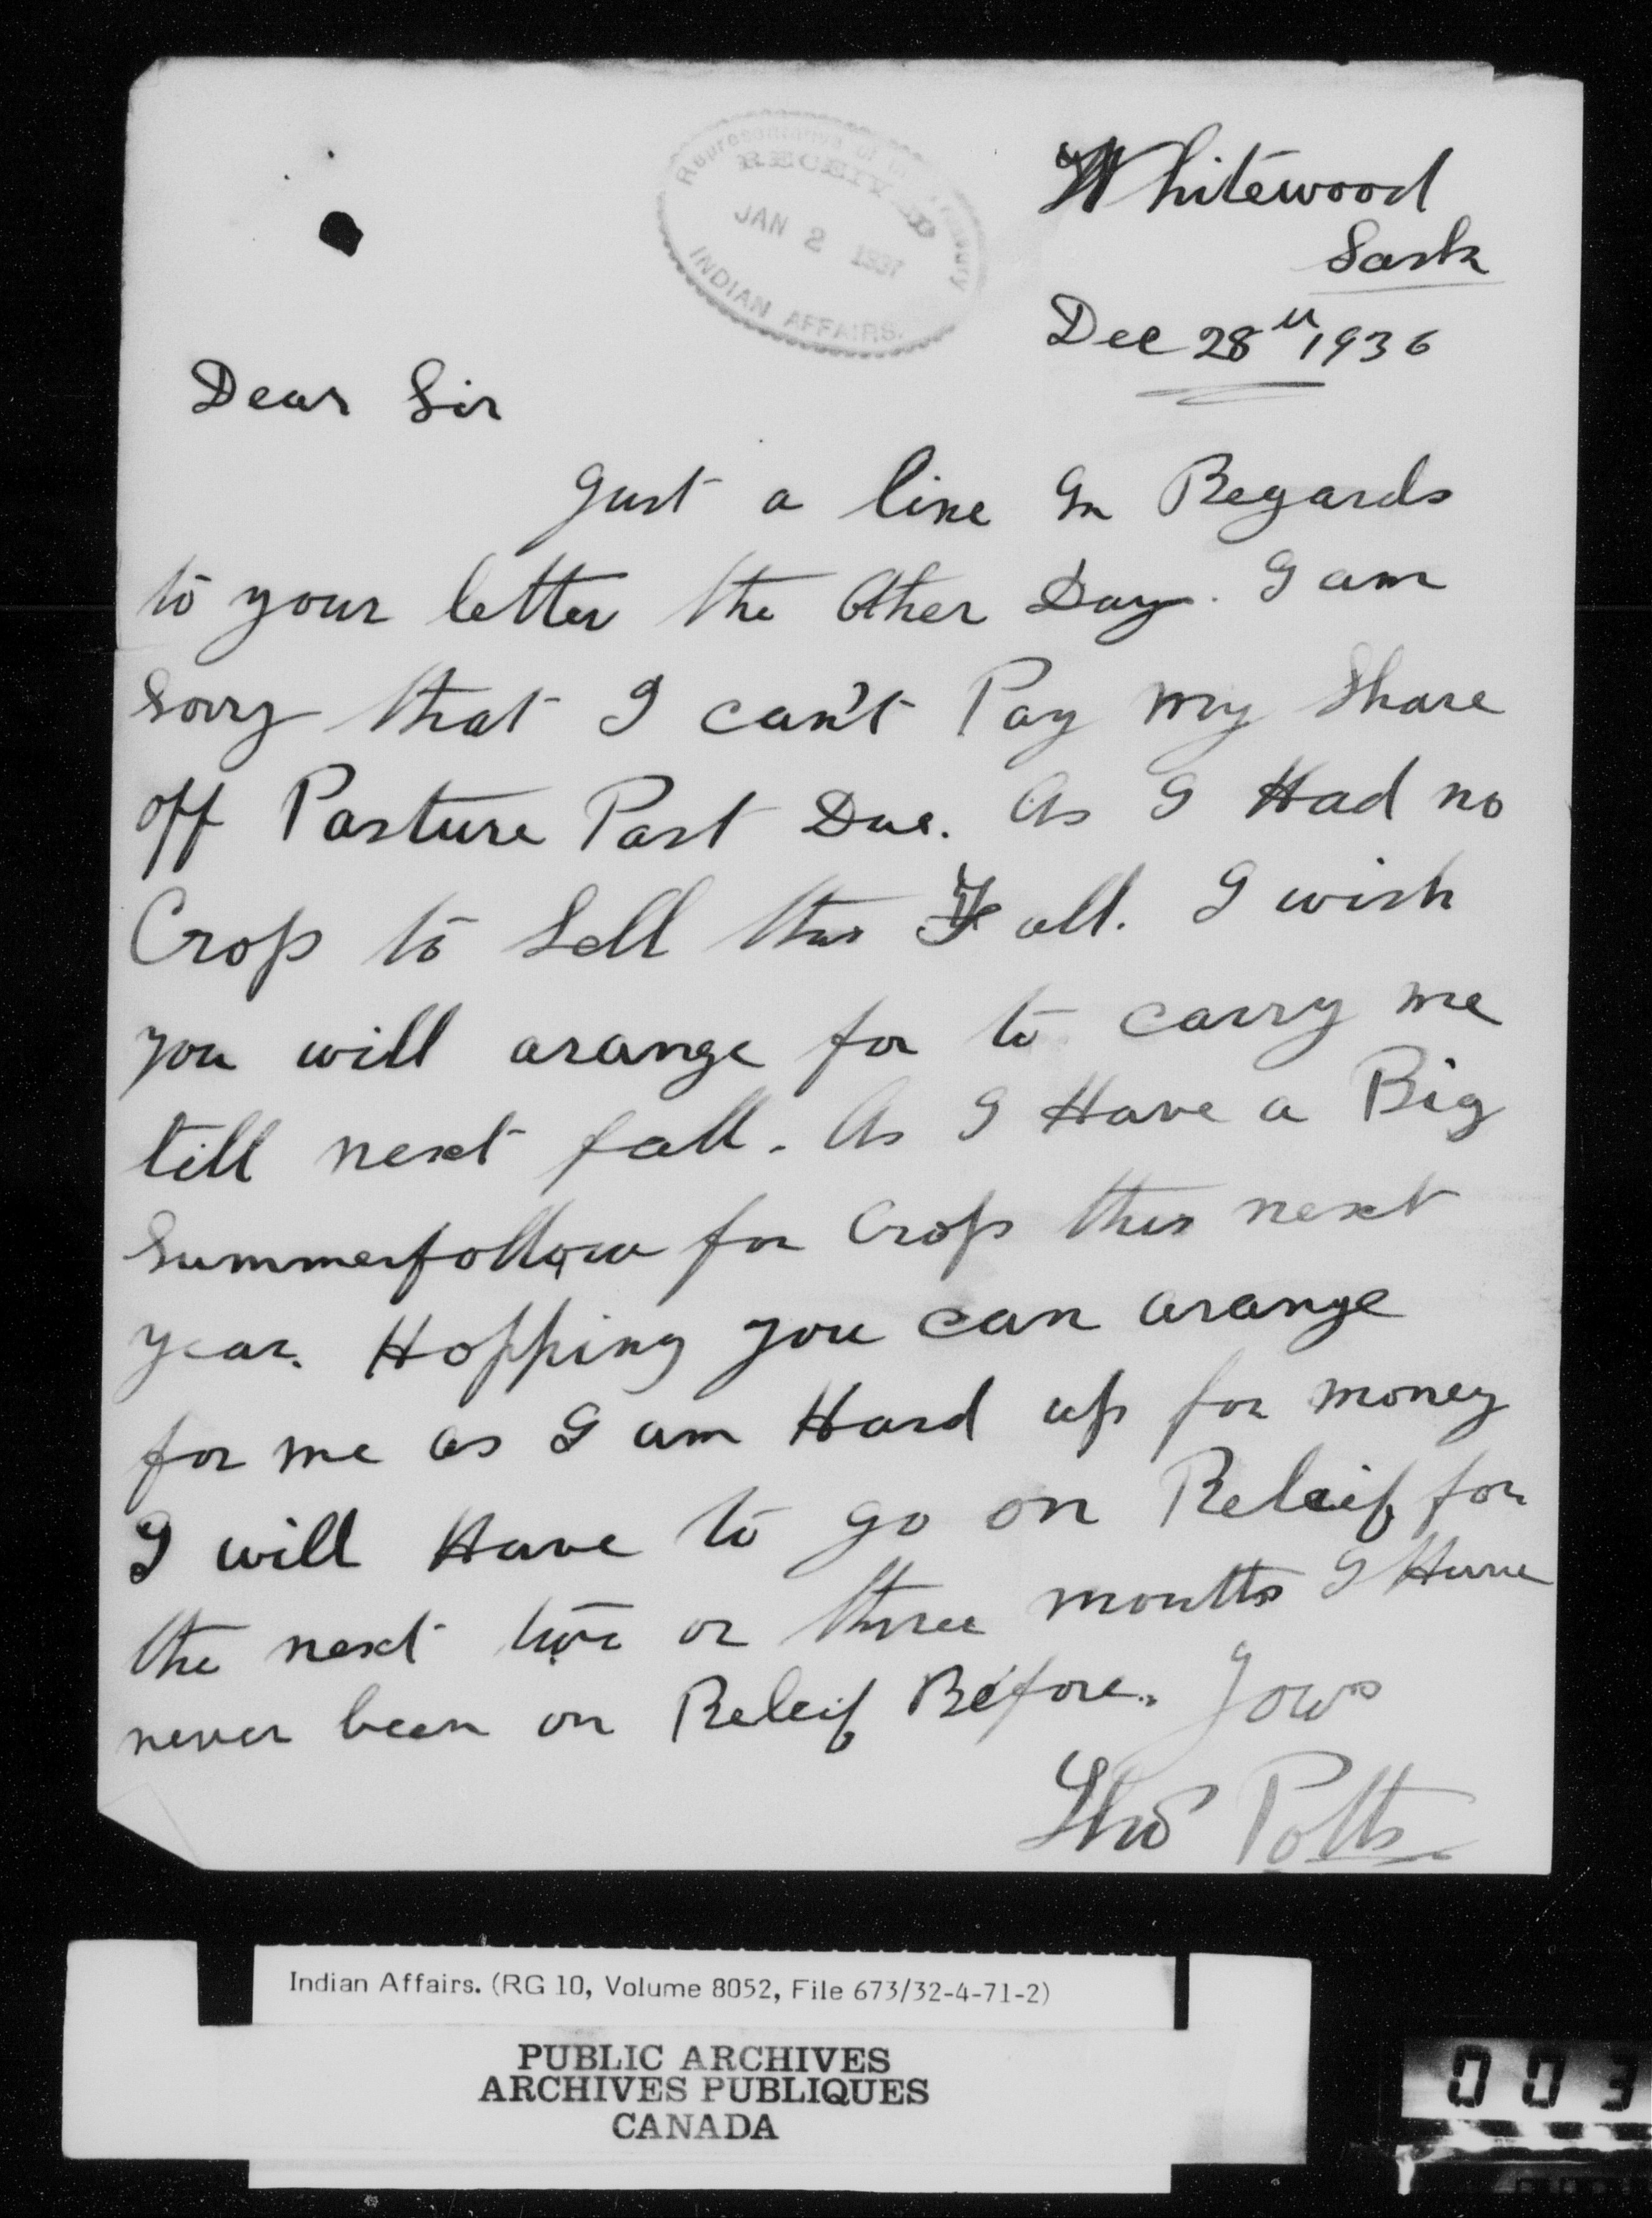 Representative of the Treasury
RECEIVED
JAN 2 1937
INDIAN AFFAIRS.
Whitewood
Sask
Dec 28th 1936
Dear Sir
Just a line In Regards
to your letter the Other Day. I am
Sorry that I can't Pay my Share
off Pasture Past Due. As I Had no
Crop to Sell this Fall. I wish
you will arange for to carry me
till next fall. As I Have a Big
Summerfollow for Crop this next
year. Hopping you can arange
for me as I am Hard up for money
I will Have to go on Releif for
the next two or three months I Have
never been on Releif Before. Yours
Thos Potts
Indian Affairs. (RG 10, Volume 8052, File 673/32-4-71-2)
PUBLIC ARCHIVES
ARCHIVES PUBLIQUES
CANADA
003